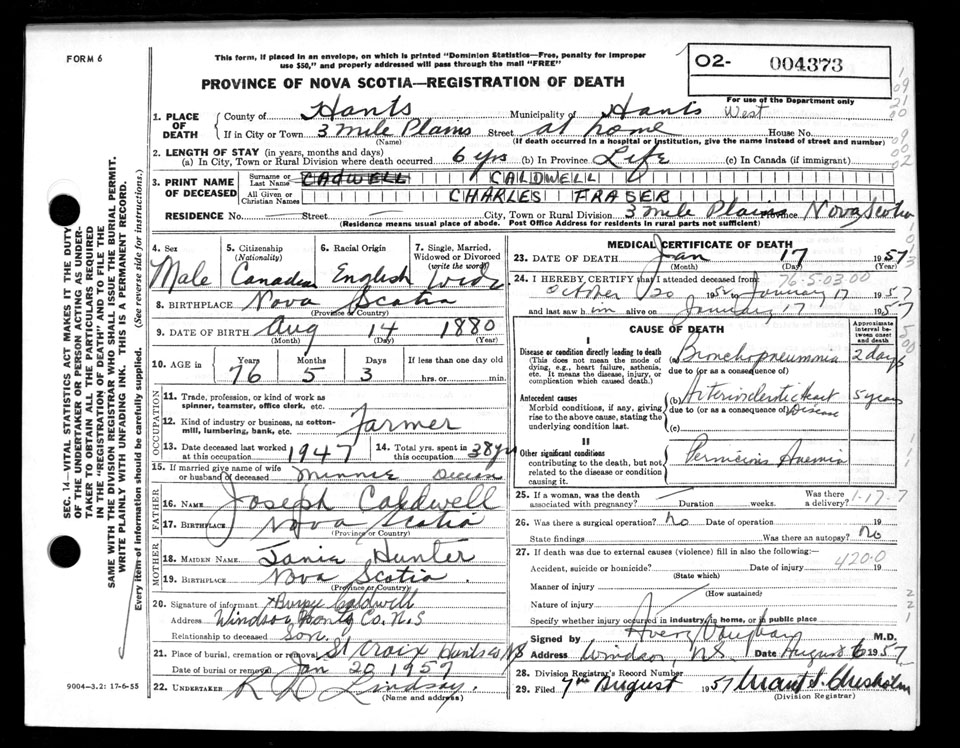 FORM 6
This form, if placed in an envelope, on which is printed "Dominion Statistics—Free, penalty for improper
use $50," and properly addressed will pass through the mail "FREE"
PROVINCE OF NOVA SCOTIA—REGISTRATION OF DEATH
O2- 004373
For use of the Department only
1. PLACE OF DEATH
County of Hants Municipality of Hants West
If in City or Town 3 Mile Plains Street at home House No.
(Name) (If death occurred in a hospital or institution, give the name instead of street and number)
2. LENGTH OF STAY (in years, months and days)
(a) In City, Town or Rural Division where death occurred 6 yrs (b) In Province Life (c) In Canada (if immigrant)
3. PRINT NAME OF DECEASED
Surname or Last Name CADWELL CALDWELL
All Given or Christian Names CHARLES FRASER
RESIDENCE No. — Street — City, Town or Rural Division 3 Mile Plains Province Nova Scotia
(Residence means usual place of abode. Post Office Address for residents in rural parts not sufficient)
4. Sex Male
5. Citizenship (Nationality) Canadian
6. Racial Origin English
7. Single, Married, Widowed or Divorced (write the word) Wid
8. BIRTHPLACE Nova Scotia
(Province or Country)
9. DATE OF BIRTH Aug 14 1880
(Month) (Day) (Year)
10. AGE in Years Months Days If less than one day old
76 5 3 hrs. or min.
OCCUPATION
11. Trade, profession, or kind of work as spinner, teamster, office clerk, etc.
12. Kind of industry or business, as cotton-mill, lumbering, bank, etc. Farmer
13. Date deceased last worked at this occupation 1947
14. Total yrs. spent in this occupation 38 yrs
15. If married give name of wife or husband of deceased Minnie
FATHER
16. NAME Joseph Caldwell
17. BIRTHPLACE Nova Scotia
(Province or Country)
MOTHER
18. MAIDEN NAME Janie Hunter
19. BIRTHPLACE Nova Scotia
(Province or Country)
20. Signature of informant X Burpee Caldwell
Address Windsor Hants Co. N.S
Relationship to deceased Son
21. Place of burial, cremation or removal St Croix Hants Co N S
Date of burial or removal Jan 20 1957
22. UNDERTAKER Lindsay.
(Name and address)
9004-3.2: 17-6-55
MEDICAL CERTIFICATE OF DEATH
23. DATE OF DEATH Jan 17 1957
(Month) (Day) (Year)
76-5-03.00
24. I HEREBY CERTIFY that I attended deceased from
October 20 195 to January 17 1957
and last saw him alive on January 17 1957
CAUSE OF DEATH
Approximate interval between onset and death
I
Disease or condition directly leading to death (a) Bronchopneumonia 2 days
(This does not mean the mode of dying, e.g., heart failure, asthenia, etc. It means the disease, injury, or complication which caused death.)
due to (or as a consequence of)
Antecedent causes (b) Arteriosclerotic heart Disease 5 years
Morbid conditions, if any, giving rise to the above cause, stating the underlying condition last.
due to (or as a consequence of)
(c)
II
Other significant conditions Pernicious Anemia
contributing to the death, but not related to the disease or condition causing it.
25. If a woman, was the death associated with pregnancy? Duration weeks. Was there a delivery?
1-17-7
26. Was there a surgical operation? no Date of operation 19
State findings Was there an autopsy? no
27. If death was due to external causes (violence) fill in also the following:
420.0
Accident, suicide or homicide? Date of injury 19
(State which)
Manner of injury
(How sustained)
Nature of injury
Specify whether injury occurred in industry, in home, or in public place
Signed by Avery Vaughan M.D.
Address Windsor, N.S. Date August 6 1957
28. Division Registrar's Record Number
29. Filed 7th August 1957 Chisholm
(Division Registrar)
SEC. 14—VITAL STATISTICS ACT MAKES IT THE DUTY
OF THE UNDERTAKER OR PERSON ACTING AS UNDER-
TAKER TO OBTAIN ALL THE PARTICULARS REQUIRED
IN THE "REGISTRATION OF DEATH" AND TO FILE THE
SAME WITH THE DIVISION REGISTRAR WHO SHALL ISSUE THE BURIAL PERMIT.
WRITE PLAINLY WITH UNFADING INK. THIS IS A PERMANENT RECORD.
Every item of information should be carefully supplied. (See reverse side for instructions.)